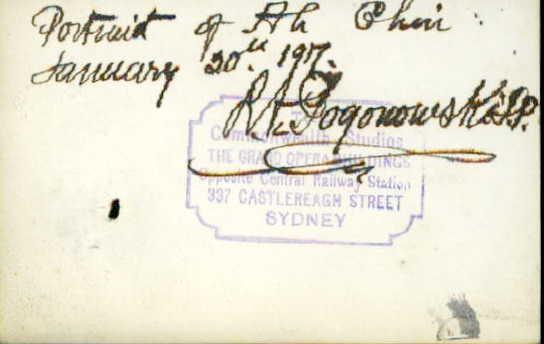 Portrait of Ah Chin
January 30th 1917.
R K Pogonowski J.P.
The
Commonwealth Studios
THE GRAND OPERA BUILDINGS
Opposite Central Railway Station
337 CASTLEREAGH STREET
SYDNEY